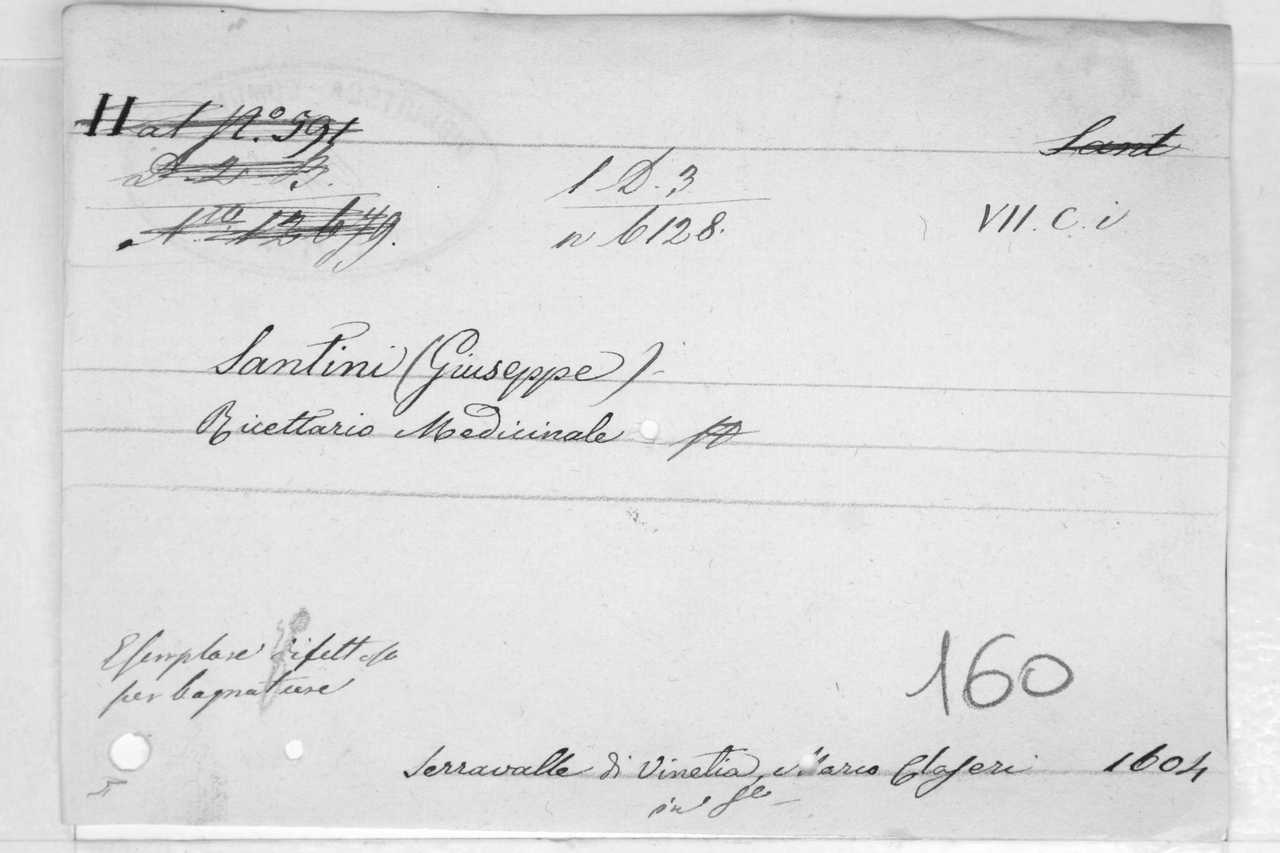 H at N.º 591
Sant
1 D. 3
n 6128.
VII. C. i
Nro 12649.
Santini (Giuseppe)
Ricettario Medicinale
Esemplare difettoso
per bagnature
160
Serravalle di Vinetia, Marco Claseri 1604
in 8º